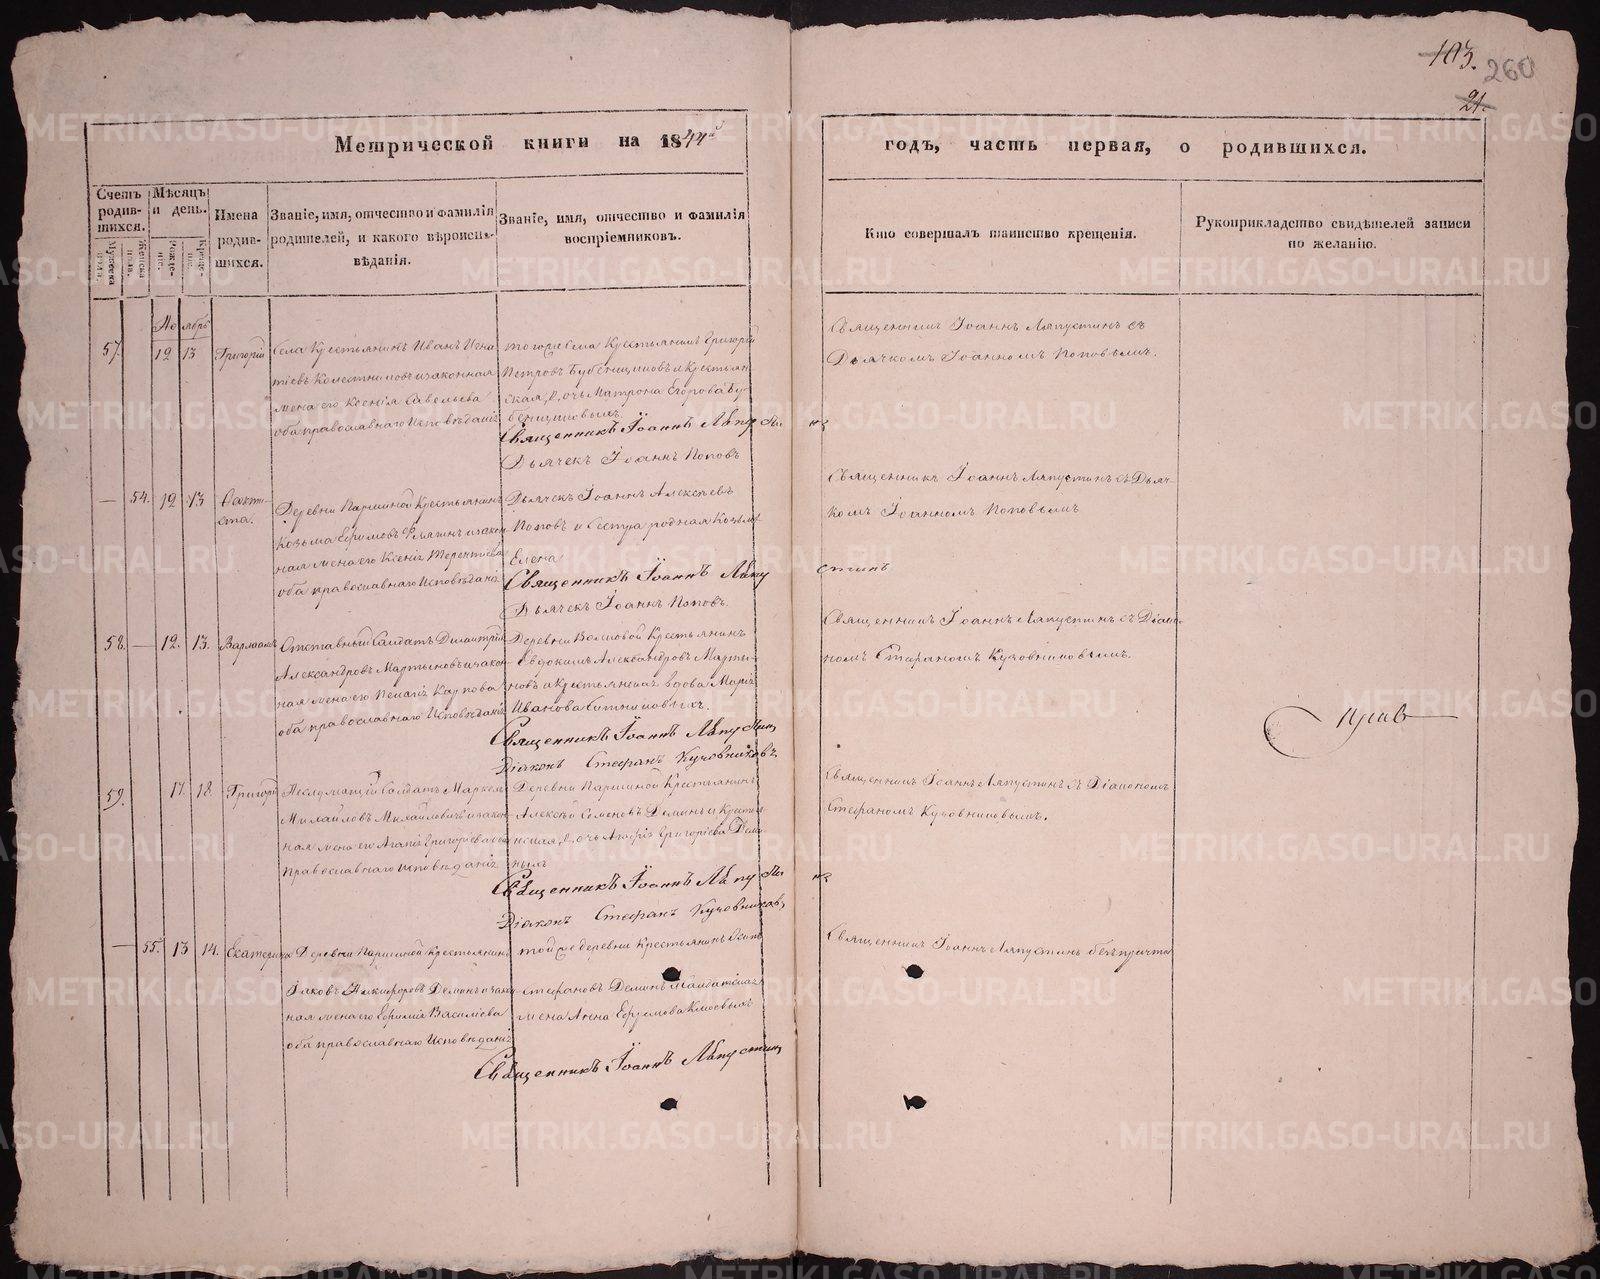 103.
260
21.
Метрической книги на 1844й
годъ, часть первая, о родившихся.
Счетъ родив-шихся.
Мужеска пола.
Женска пола.
Мѣсяцъ и день.
Рожде-нія.
Креще-нія.
Имена родив-шихся.
Званіе, имя, отчество и фамилія
родителей, и какого вѣроиспо-
вѣданія.
Званіе, имя, отчество и фамилія
воспріемниковъ.
Кто совершалъ таинство крещенія.
Рукоприкладство свидѣтелей записи
по желанію.
Ноябрь
57. 12 13 Григорій
Села Крестьянинъ Иванъ Игна
тіевъ Колесниковъ и законная
жена его Ксенія Савельева
оба православнаго исповѣданія
тогоже села Крестьянинъ Григорій
Петровъ Бубенщиковъ и Крестьян
ская дочь Матрона Егорова Бу-
бенщиковыхъ.
Священникъ Іоаннъ Ляпустинъ
Дьячекъ Іоаннъ Поповъ
Священникъ Іоаннъ Ляпустинъ съ
Дьячкомъ Іоанномъ Поповымъ.
— 54. 12 13 Феокти-
ста.
Деревни Паршиной Крестьянинъ
Козьма Ефимовъ и закон
ная жена его Ксенія Терентіева
оба православнаго исповѣданія
Дьячекъ Іоаннъ Алексѣевъ
Поповъ и Сестра родная Козьмѣ
Елена
Священникъ Іоаннъ Ляпустинъ
Дьячекъ Іоаннъ Поповъ.
Священникъ Іоаннъ Ляпустинъ съ Дьяч-
комъ Іоанномъ Поповымъ
58. — 12. 13. Варлаамъ
Отставный Солдатъ Димитрій
Александровъ Мартыновъ и закон-
ная жена его Пелагія Карпова
оба православнаго исповѣданія
Деревни Волковой Крестьянинъ
Евдокимъ Александровъ Марты-
новъ и Крестьянская вдова Марія
Иванова Ситниковыхъ.
Священникъ Іоаннъ Ляпустинъ
Діаконъ Стефанъ Кузовниковъ.
Священникъ Іоаннъ Ляпустинъ съ Діако-
номъ Стефаномъ Кузовниковымъ.
59. 17. 18. Григорій
Солдатъ
Михайловъ Михайловичъ и закон-
ная жена его Агапія Григоріева оба
православнаго исповѣданія
Деревни Паршиной Крестьянинъ
Алексѣй Семеновъ Деминъ и Крестья
нская дочь Агафія Григоріева Деми
ныхъ
Священникъ Іоаннъ Ляпустинъ
Діаконъ Стефанъ Кузовниковъ
Священникъ Іоаннъ Ляпустинъ съ Діакономъ
Стефаномъ Кузовниковымъ.
— 55. 13 14. Екатерина
Деревни Паршиной Крестьянинъ
Іаковъ Никифоровъ Деминъ и закон
ная жена его Ефимія Василіева
оба православнаго исповѣданія
той же деревни Крестьянинъ Осипъ
Стефановъ Деминъ и Солдатская
жена Анна Ефремова
Священникъ Іоаннъ Ляпустинъ
Священникъ Іоаннъ Ляпустинъ безъ причта
METRIKI.GASO-URAL.RU